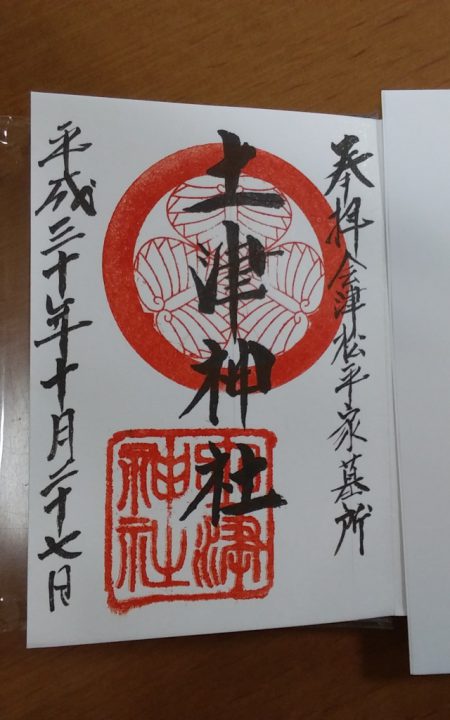 奉拝会津松平家墓所
土津神社
土津神社
平成三十年十月二十七日